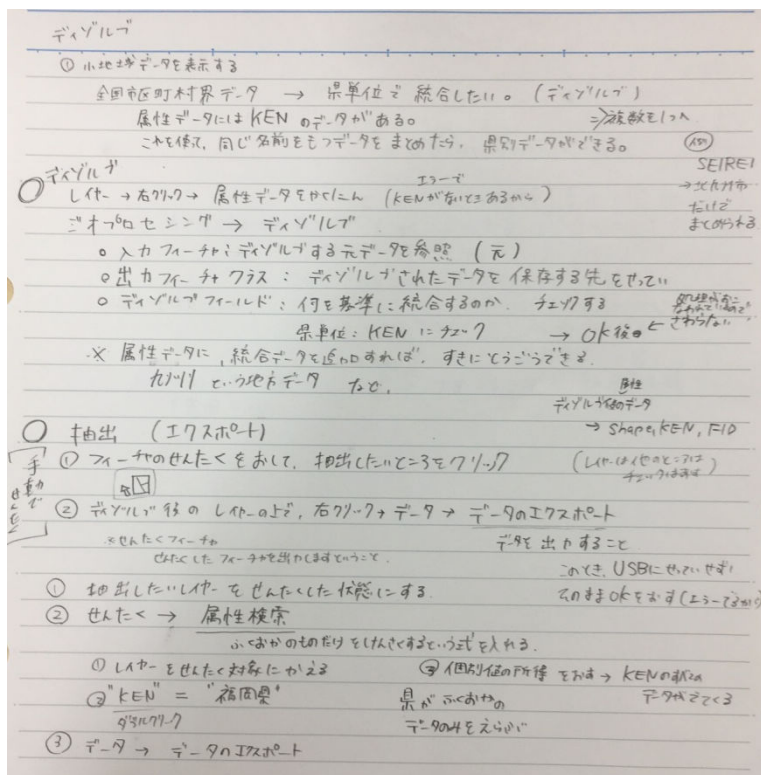 ディゾルブ
① 小地域データを表示する
全国市区町村界データ → 県単位で統合したい。(ディゾルブ)
属性データにはKENのデータがある。 ⇒複数を1つへ
これを使って、同じ名前をもつデータをまとめたら、県別データができる。
SEIREI
→北九州市
だけで
まとめられる
○ディゾルブ
レイヤー→右クリック→ 属性データをかくにん (KENがないとエラーでるときあるから)
ジオプロセシング → ディゾルブ
○入力フィーチャ:ディゾルブする元データを参照 (元)
○出力フィーチャクラス: ディゾルブされたデータを保存する先をせってい
○ディゾルブフィールド:何を基準に統合するのか. チェックする
県単位:KENにチェック → OK後
さわらない
※ 属性データに、統合データを追加すれば、すきにとうごうできる.
九州 という地方データ など.
属性
ディゾルブ後のデータ
→ shape,KEN,FID
○ 抽出 (エクスポート)
手動でせんたく
① フィーチャのせんたくをおして、抽出したいところをクリック
② ディゾルブ後のレイヤーの上で、右クリック→データ→データのエクスポート
※せんたくフィーチャ
せんたくしたフィーチャを出力しますということ.
データを出力すること
このとき、USBにせっていせず、
そのままOKをおす(エラーでるから)
① 抽出したいレイヤーをせんたくした状態にする.
② せんたく → 属性検索
ふくおかのものだけをけんさくするという式を入れる.
① レイヤーをせんたく対象にかえる
③ 個別値の所得をおす→KENのすべての
データがでてくる
② "KEN" = "福岡県"
ダブルクリック
県がふくおかの
データのみをえらぶ
③ データ → データのエクスポート